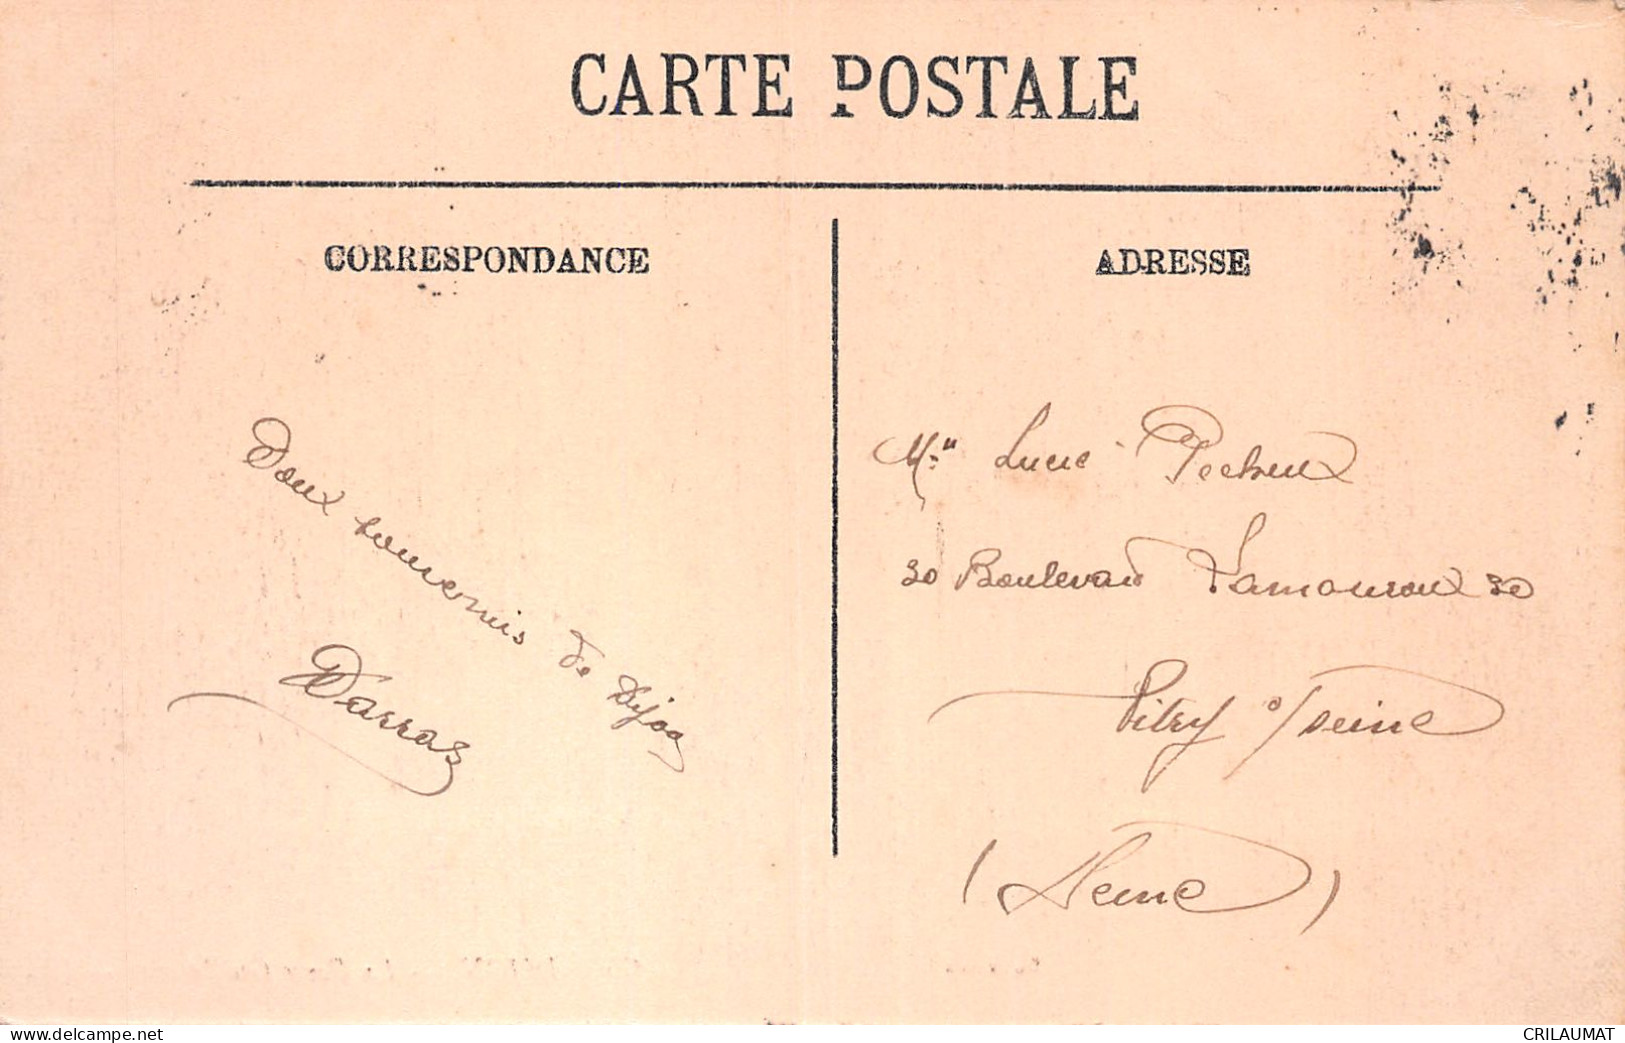 CARTE POSTALE
CORRESPONDANCE
ADRESSE
Doux souvenirs de Dijon
Darras
Mlle Lucie
30 Boulevard Lamouroux 30
Vitry s/Seine
(Seine)
www.delcampe.net
CRILAUMAT